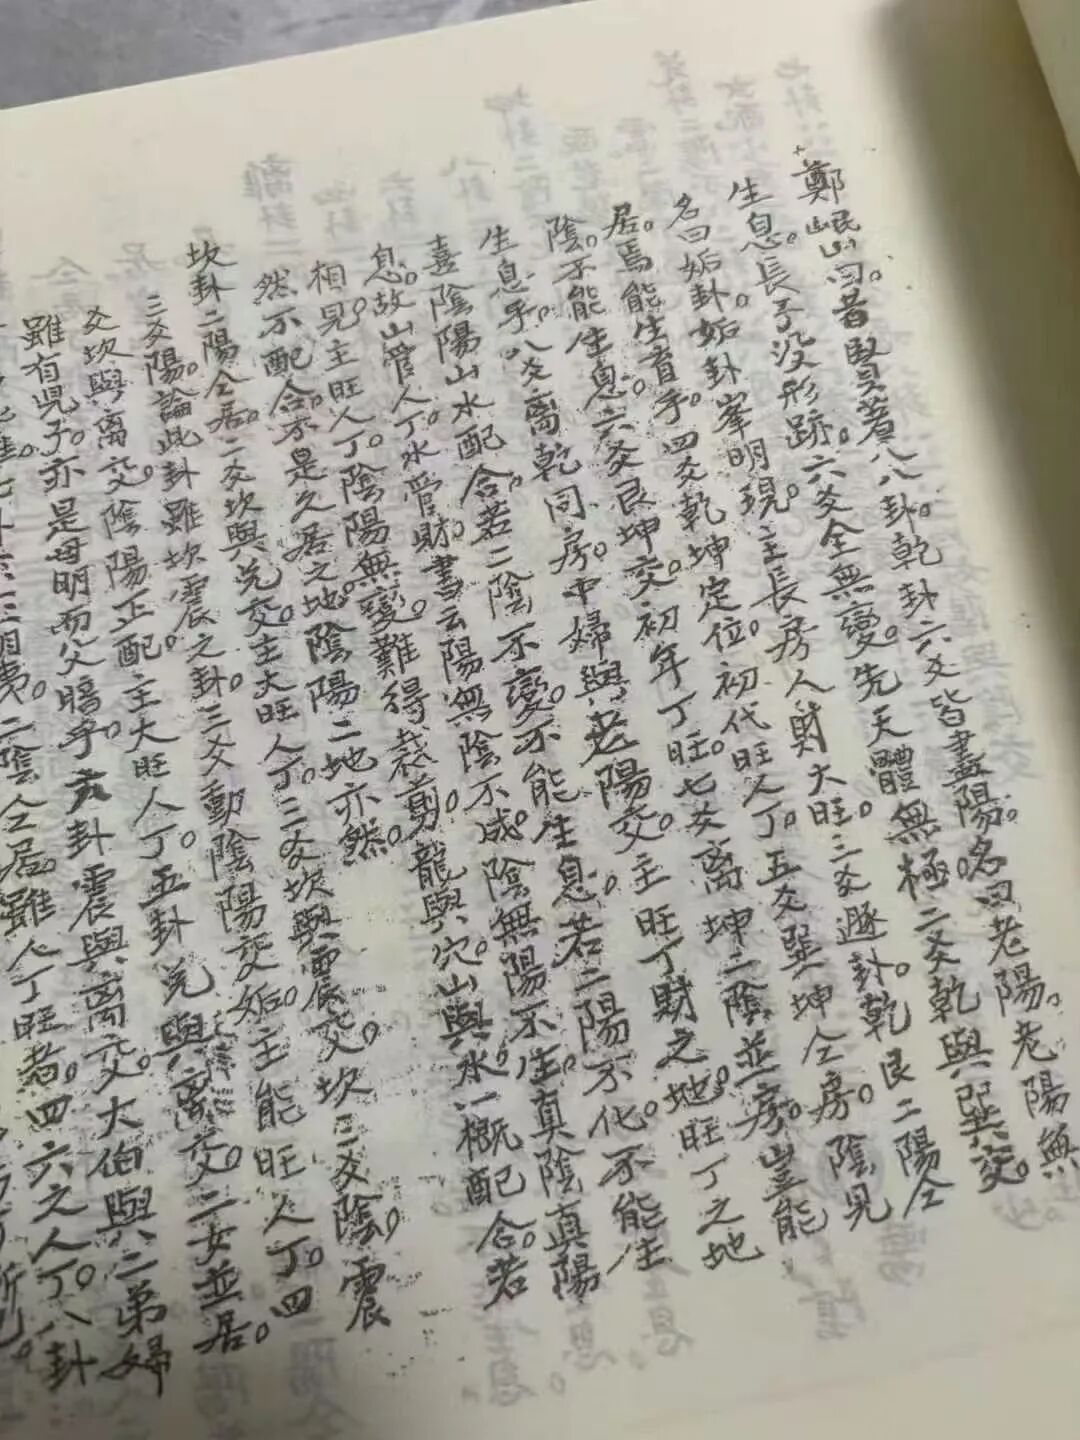 鄭岷山曰。昔賢著八卦。乾卦六爻皆盡陽。名曰老陽。老陽無
生息。長子没形跡。六爻全無變。先天體無極。二爻乾與巽交。
名曰姤卦。姤卦峯明現。主長房人財大旺。三爻遯卦。乾艮二陽仝
居。焉能生育乎。四爻乾坤定位。初代旺人丁。五爻巽坤仝房。陰見
陰。不能生息。六爻艮坤交。初年丁旺。七爻离坤二陰並房。豈能
生息乎。八爻离乾同房。中婦與老陽交。主旺丁財之地。旺丁之地
喜陰陽山水配合。若二陰不變。不能生息。若二陽不化。不能生
息。故山管人丁。水管財。書云陽無陰不成。陰無陽不生。真陰真陽
相見。主旺人丁。陰陽無變。難得裁剪。龍與穴。山與水。一概配合。若
然不配合。亦是久居之地。陰陽二地亦然。
坎卦二陽仝居。二爻坎與兌交。主大旺人丁。三爻坎與震交。坎二爻陰。震
三爻陽。論此卦雖坎震之卦。三爻動陰陽交姤。主能旺人丁。四
爻坎與离交。陰陽正配。主大旺人丁。五卦兌與离交。二女並居。
雖有兒子。亦是母明而父暗乎。六卦震與离交。大伯與二弟婦
二陰仝居。雖人丁旺者。四六之人丁。八卦